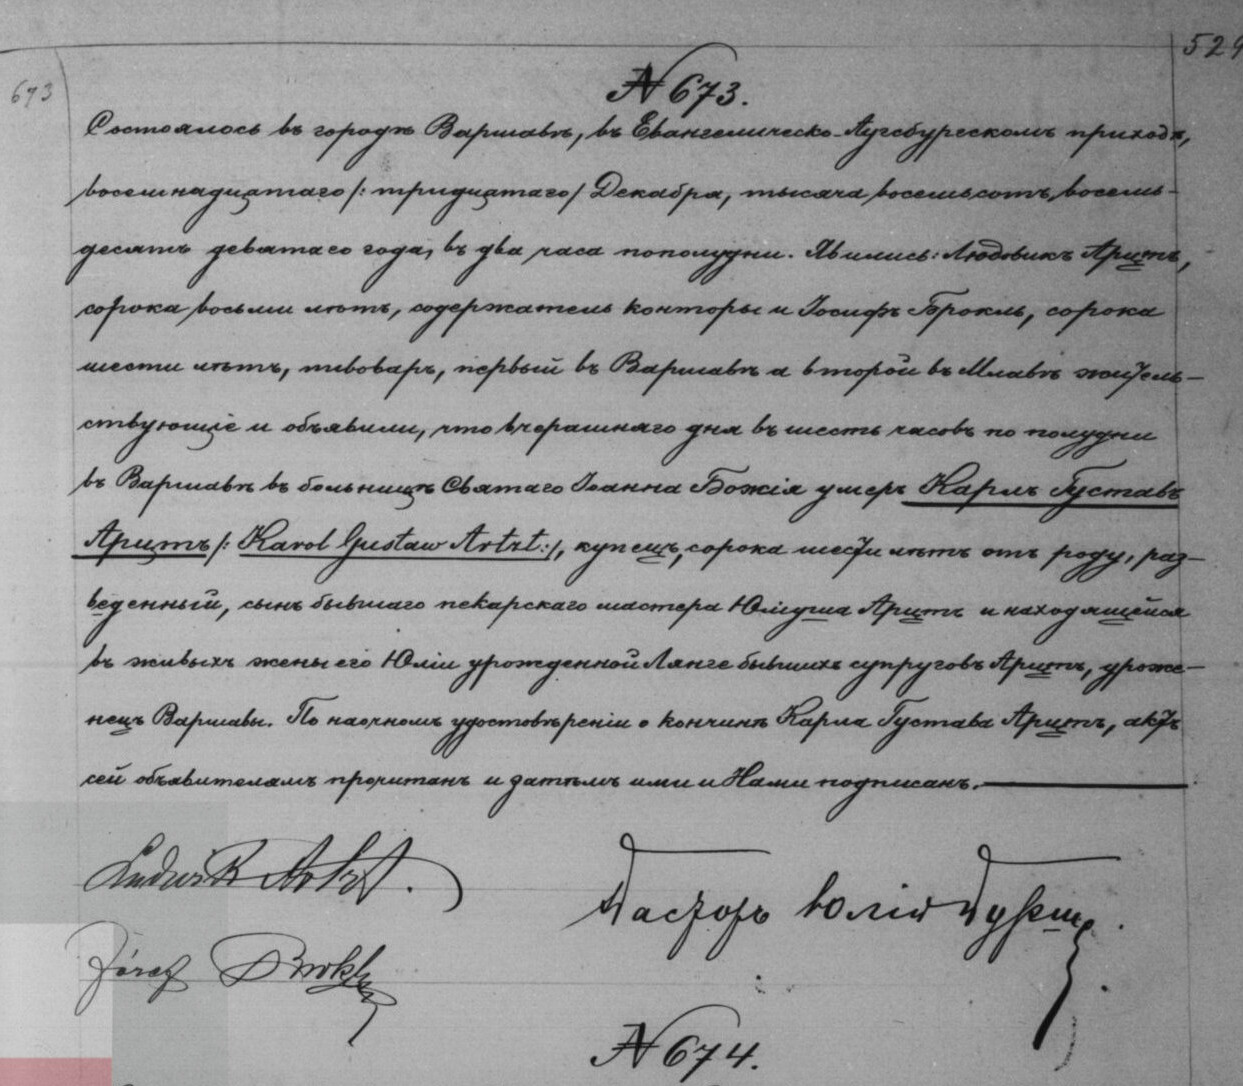 529
673
№ 673.
Состоялось въ городѣ Варшавѣ, въ Евангелическо-Аугсбургскомъ приходѣ,
восемнадцатаго /: тридцатаго / Декабря, тысяча восемьсотъ, восемь-
десятъ девятаго года, въ два часа пополудни. Явились: Людовикъ Арцтъ,
сорока восьми лѣтъ, содержатель конторы и Іосифъ Брокль, сорока
шести лѣтъ, пивоваръ, первый въ Варшавѣ а второй въ Млавѣ житель-
ствующіе и объявили, что вчерашняго дня въ шесть часовъ по полудни
въ Варшавѣ въ больницѣ Святаго Іоанна Божія умеръ Карлъ Густавъ
Арцтъ /: Karol Gustaw Artzt :/, купецъ, сорока шести лѣтъ отъ роду, раз-
веденный, сынъ бывшаго пекарскаго мастера Юлиуша Арцтъ и находящейся
въ живыхъ жены его Юліи урожденной Лянге бывшихъ супруговъ Арцтъ, уроже-
нецъ Варшавы. По наочномъ удостовѣреніи о кончинѣ Карла Густава Арцтъ, актъ
сей объявителямъ прочитанъ и затѣмъ ими и Нами подписанъ.
Ludwik Artzt.
Пасторъ Юлій Бурше.
Józef Brokl
№ 674.